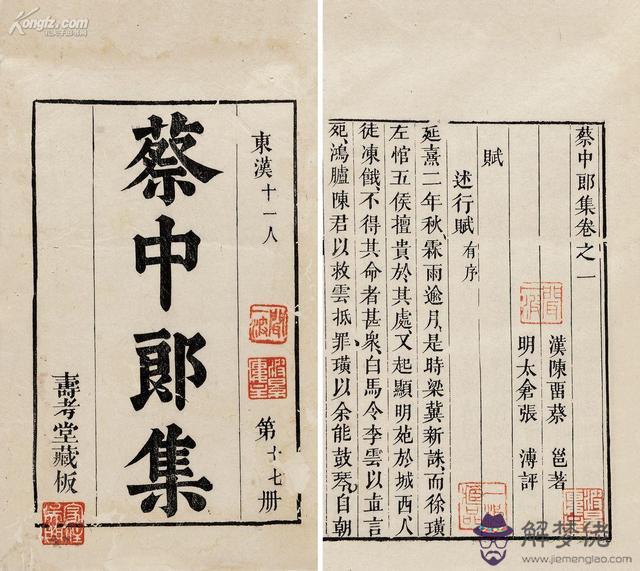 Kongfz.com
東漢十一人
第十七册
蔡中郎集
壽考堂藏板
蔡中郎集卷之一
漢陳畱蔡 邕著
明太倉張 溥評
賦
述行賦有序
延熹二年秋霖雨逾月是時梁冀新誅而徐璜
左悺五侯擅貴於其處又起顯明苑於城西人
徒凍餓不得其命者甚衆白馬令李雲以直言
死鴻臚陳君以救雲抵罪璜以余能鼓琴自朝
解梦佬
www.jiemenglao.com